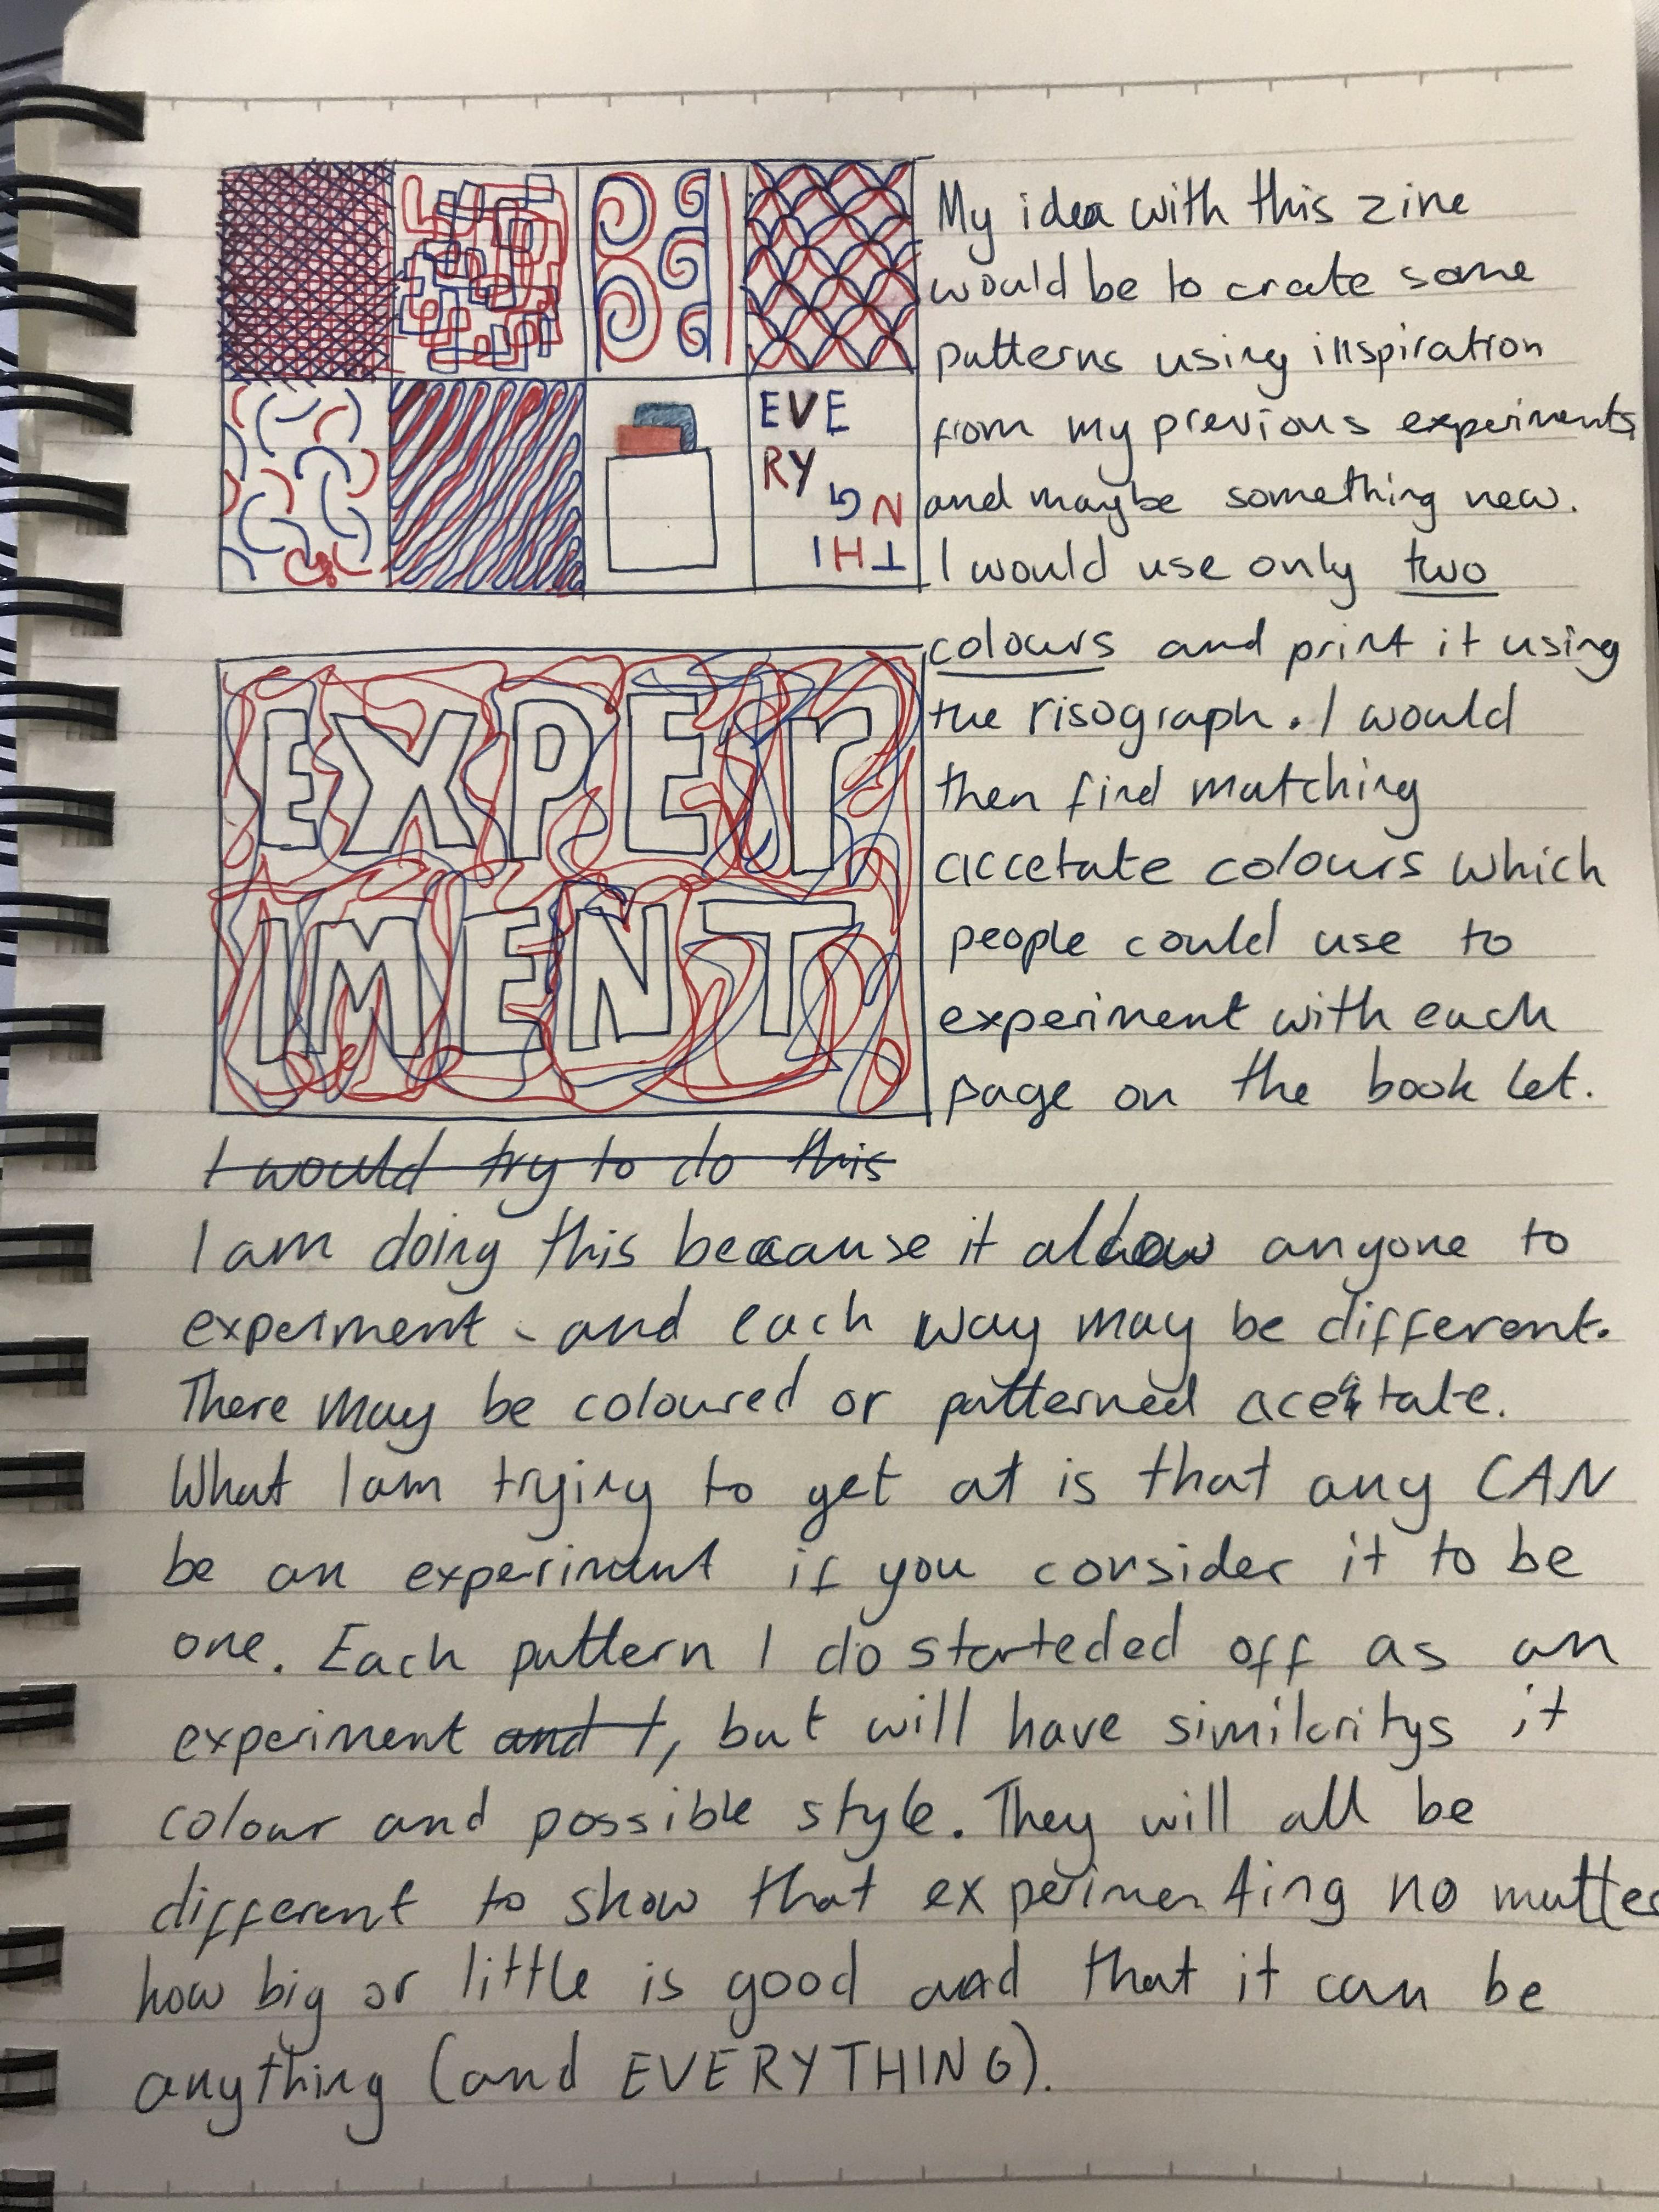 My idea with this zine
would be to crate some
patterns using inspiration
from my previous experiments
and maybe something new.
I would use only two
colours and print it using
the risograph. I would
then find matching
accetate colours which
people could use to
experiment with each
page on the book let.
EVE
RY
NG
THI
EXPEr
IMENT
I would try to do this
I am doing this because it allow anyone to
experment and each way may be different.
There may be coloured or patterned acetate.
What I am trying to get at is that any CAN
be an experiment if you consider it to be
one. Each pattern I do starteded off as an
experiment and t, but will have similaritys it
colour and possible style. They will all be
different to show that experimenting no matter
how big or little is good and that it can be
anything (and EVERYTHING).